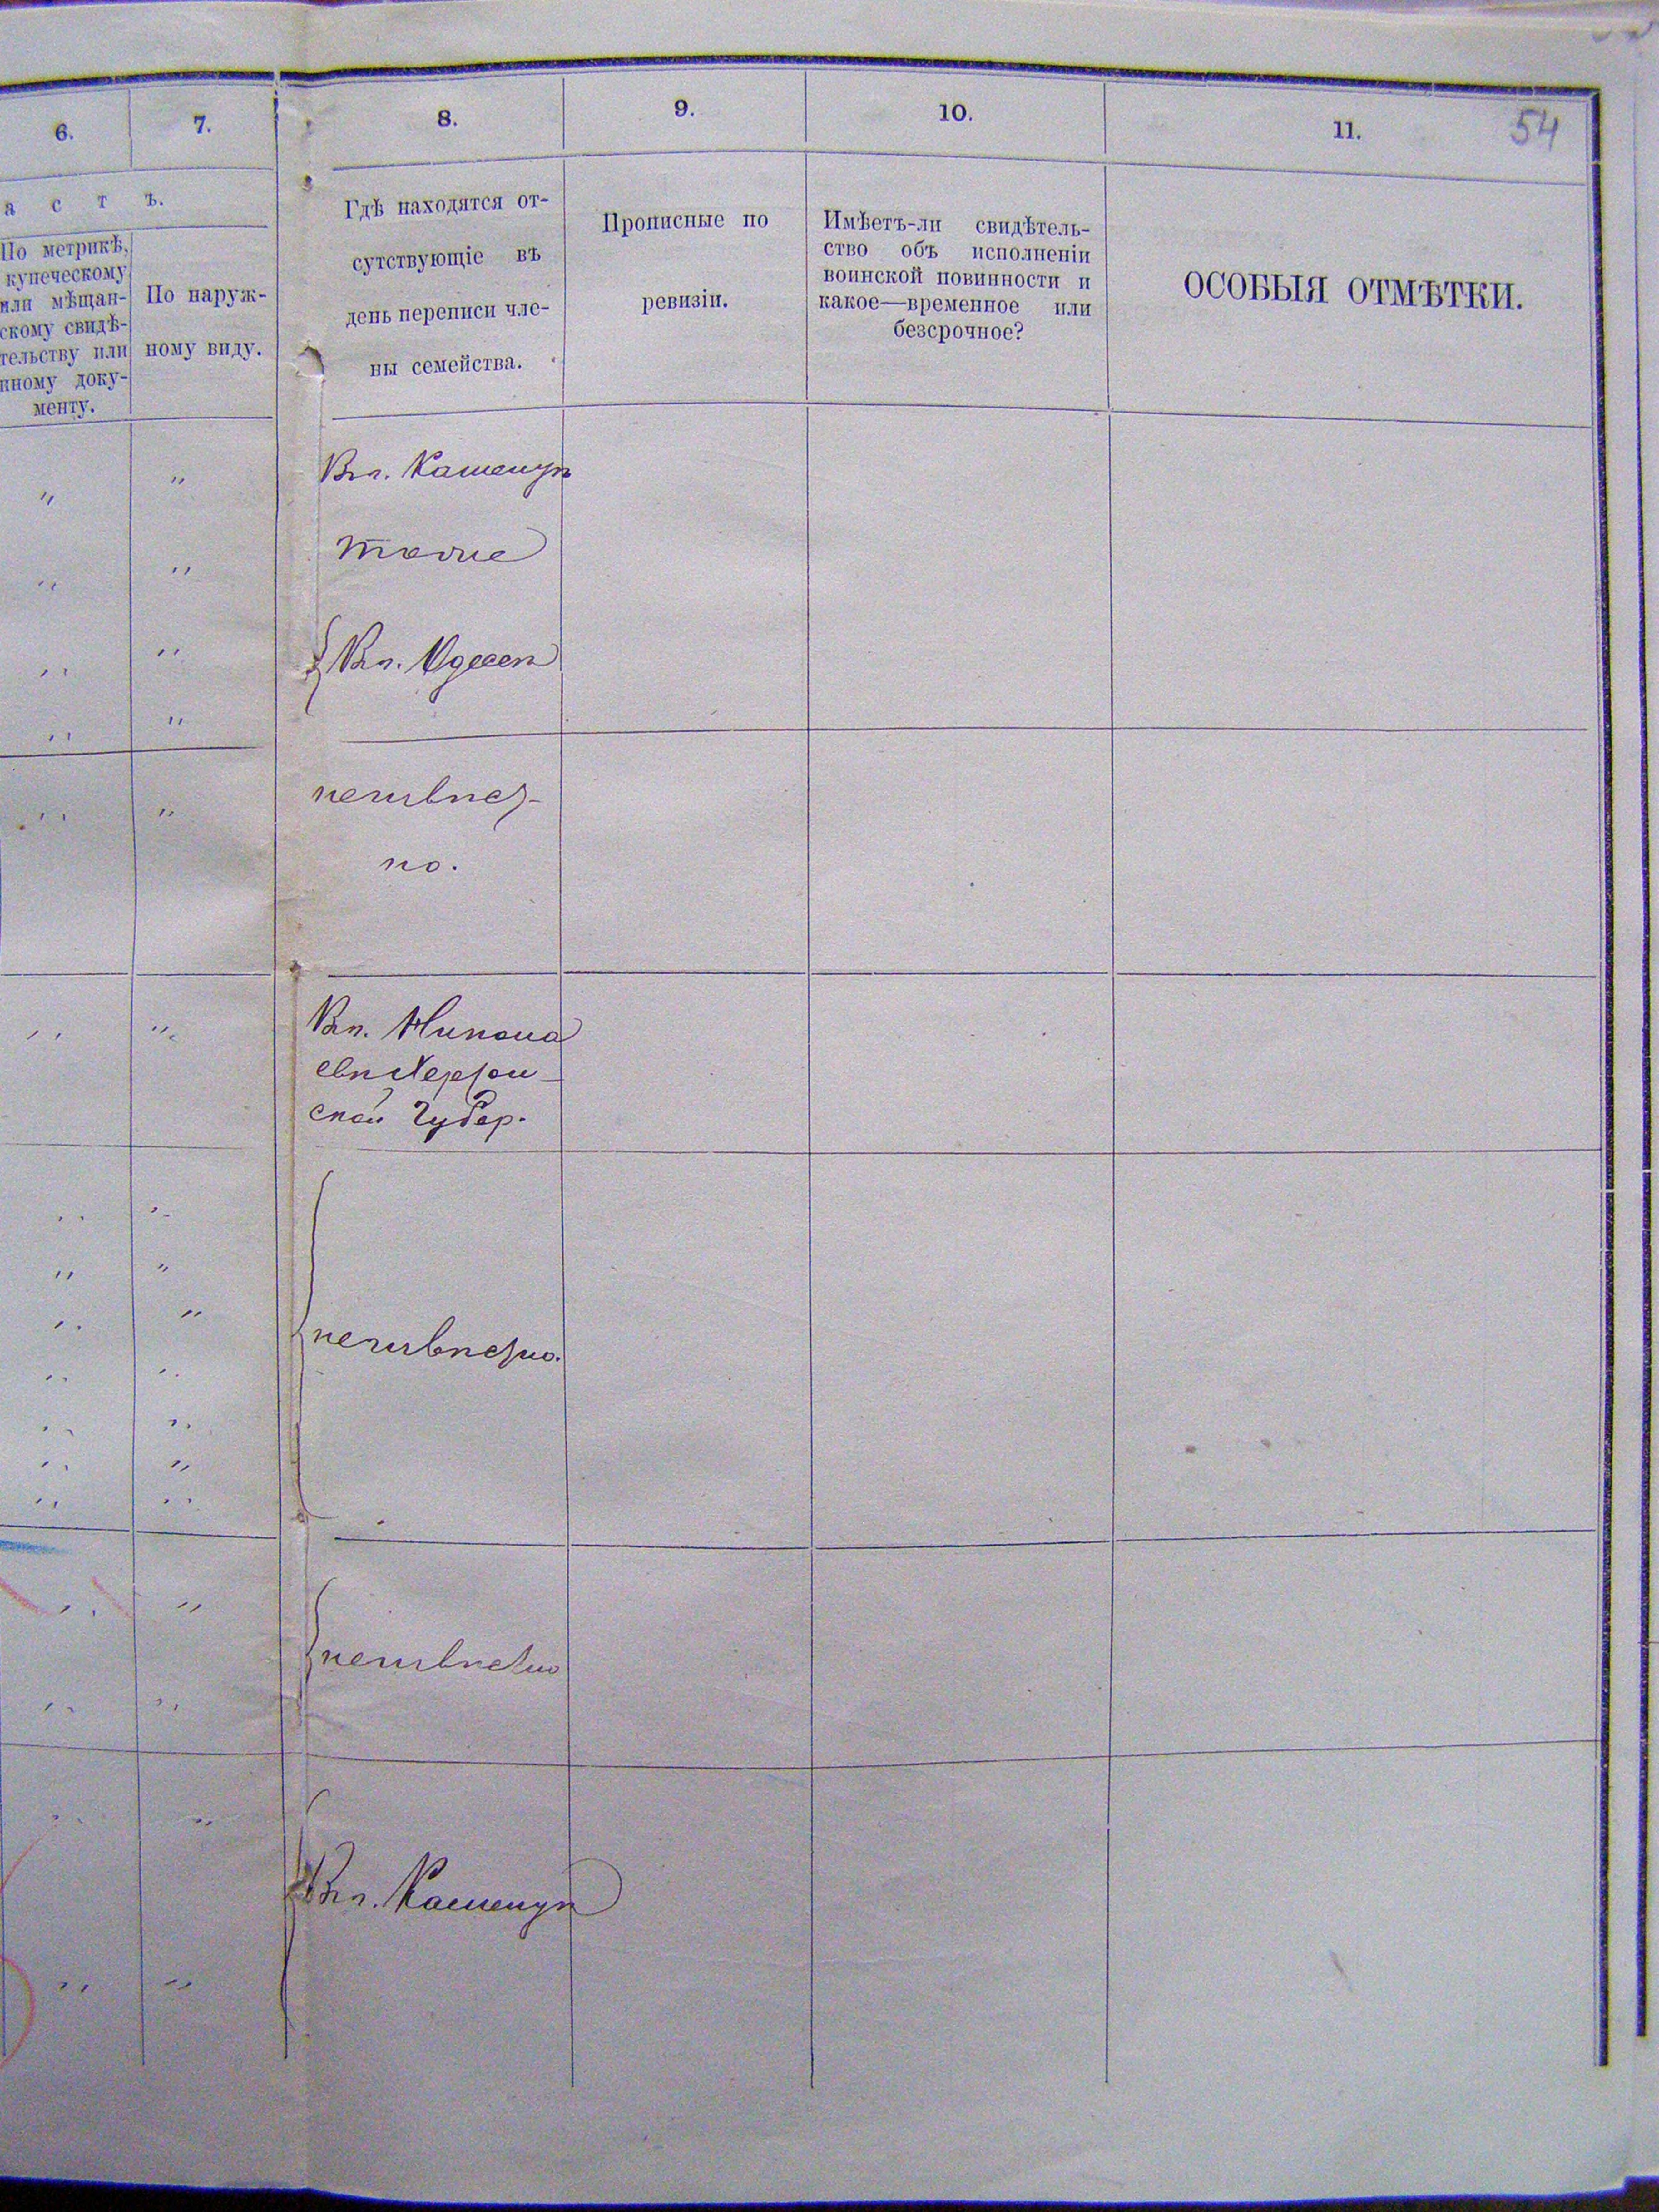 54
6.
7.
8.
9.
10.
11.
а с т ъ.
По метрикѣ,
купеческому
или мѣщан-
скому свидѣ-
тельству или
иному доку-
менту.
По наруж-
ному виду.
Гдѣ находятся от-
сутствующіе въ
день переписи чле-
ны семейства.
Прописные по
ревизіи.
Имѣетъ-ли свидѣтель-
ство объ исполненіи
воинской повинности и
какое—временное или
безсрочное?
ОСОБЫЯ ОТМѢТКИ.
" "
Вгл.
" "
тоже
" "
" "
" "
неизвѣст-
но.
" "
Никола
евѣ Херсон-
ской Губер.
" "
" "
" "
неизвѣстно.
" "
" "
" "
" "
" "
неизвѣстно
" "
" "
" "